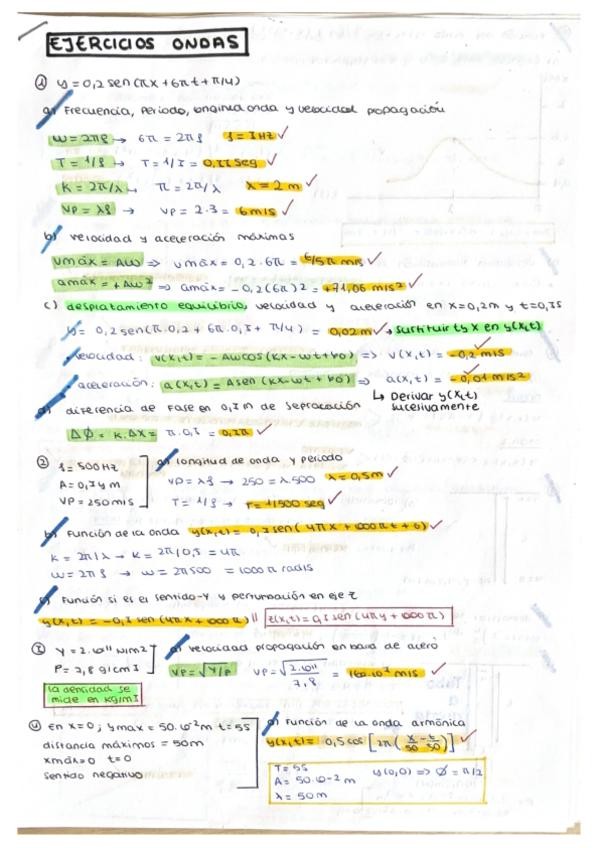 EJERCICIOS ONDAS
① y = 0,2 sen (πx + 6πt + π/4)
a) Frecuencia, Periodo, longitud onda y velocidad propagación
ω = 2πf → 6π = 2πf f = 3 Hz ✓
T = 1/f → T = 1/3 = 0,33 seg ✓
K = 2π/λ → π = 2π/λ λ = 2 m ✓
vp = λf → vp = 2·3 = 6 m/s ✓
b) velocidad y aceleración máximas
vmáx = Aω ⇒ vmáx = 0,2·6π = 6/5π m/s ✓
amáx = +Aω² ⇒ amáx = -0,2(6π)² = +71,06 m/s² ✓
c) desplazamiento equilibrio, velocidad y aceleración en x=0,2m y t=0,3s
y = 0,2 sen(π·0,2 + 6π·0,3 + π/4) = 0,02m ✓ → sustituir t y x en y(x,t)
velocidad: v(x,t) = -Aω cos (Kx-ωt+φ0) ⇒ v(x,t) = -0,2 m/s ✓
aceleración: a(x,t) = A sen (Kx-ωt+φ0) ⇒ a(x,t) = -0,01 m/s² ✓
↳ Derivar y(x,t) sucesivamente
d) diferencia de fase en 0,3 m de separación
Δφ = K·Δx = π·0,3 = 0,3π ✓
② f = 500 Hz
A = 0,3 y m
vp = 250 m/s
a) longitud de onda y periodo
vp = λf → 250 = λ·500 λ = 0,5m ✓
T = 1/f → T = 1/500 seg ✓
b) Función de la onda y(x,t) = 0,3 sen( 4πx + 1000πt + 0) ✓
K = 2π/λ → K = 2π/0,5 = 4π
ω = 2πf → ω = 2π500 = 1000π rad/s
c) Función si es el sentido -Y y perturbación en eje z
y(x,t) = -0,3 sen (4πx + 1000π) || z(x,t) = 0,3 sen (4πy + 1000π)
③ Y = 2·10¹¹ N/m²
ρ = 7,8 g/cm3
la densidad se mide en Kg/m3
a) velocidad propagación en barra de acero
vp = √Y/ρ vp = √2·10¹¹/7,8 = 160·10³ m/s ✓
④ En x=0; ymáx = 50·10⁻²m t=5s
distancia máximos = 50m
xmáx=0 t=0
sentido negativo
a) Función de la onda armónica
y(x,t) = 0,5 cos [2π (x/50 - t/50)] ✓
T = 5s
A = 50·10⁻² m
λ = 50m
y(0,0) ⇒ φ = π/2